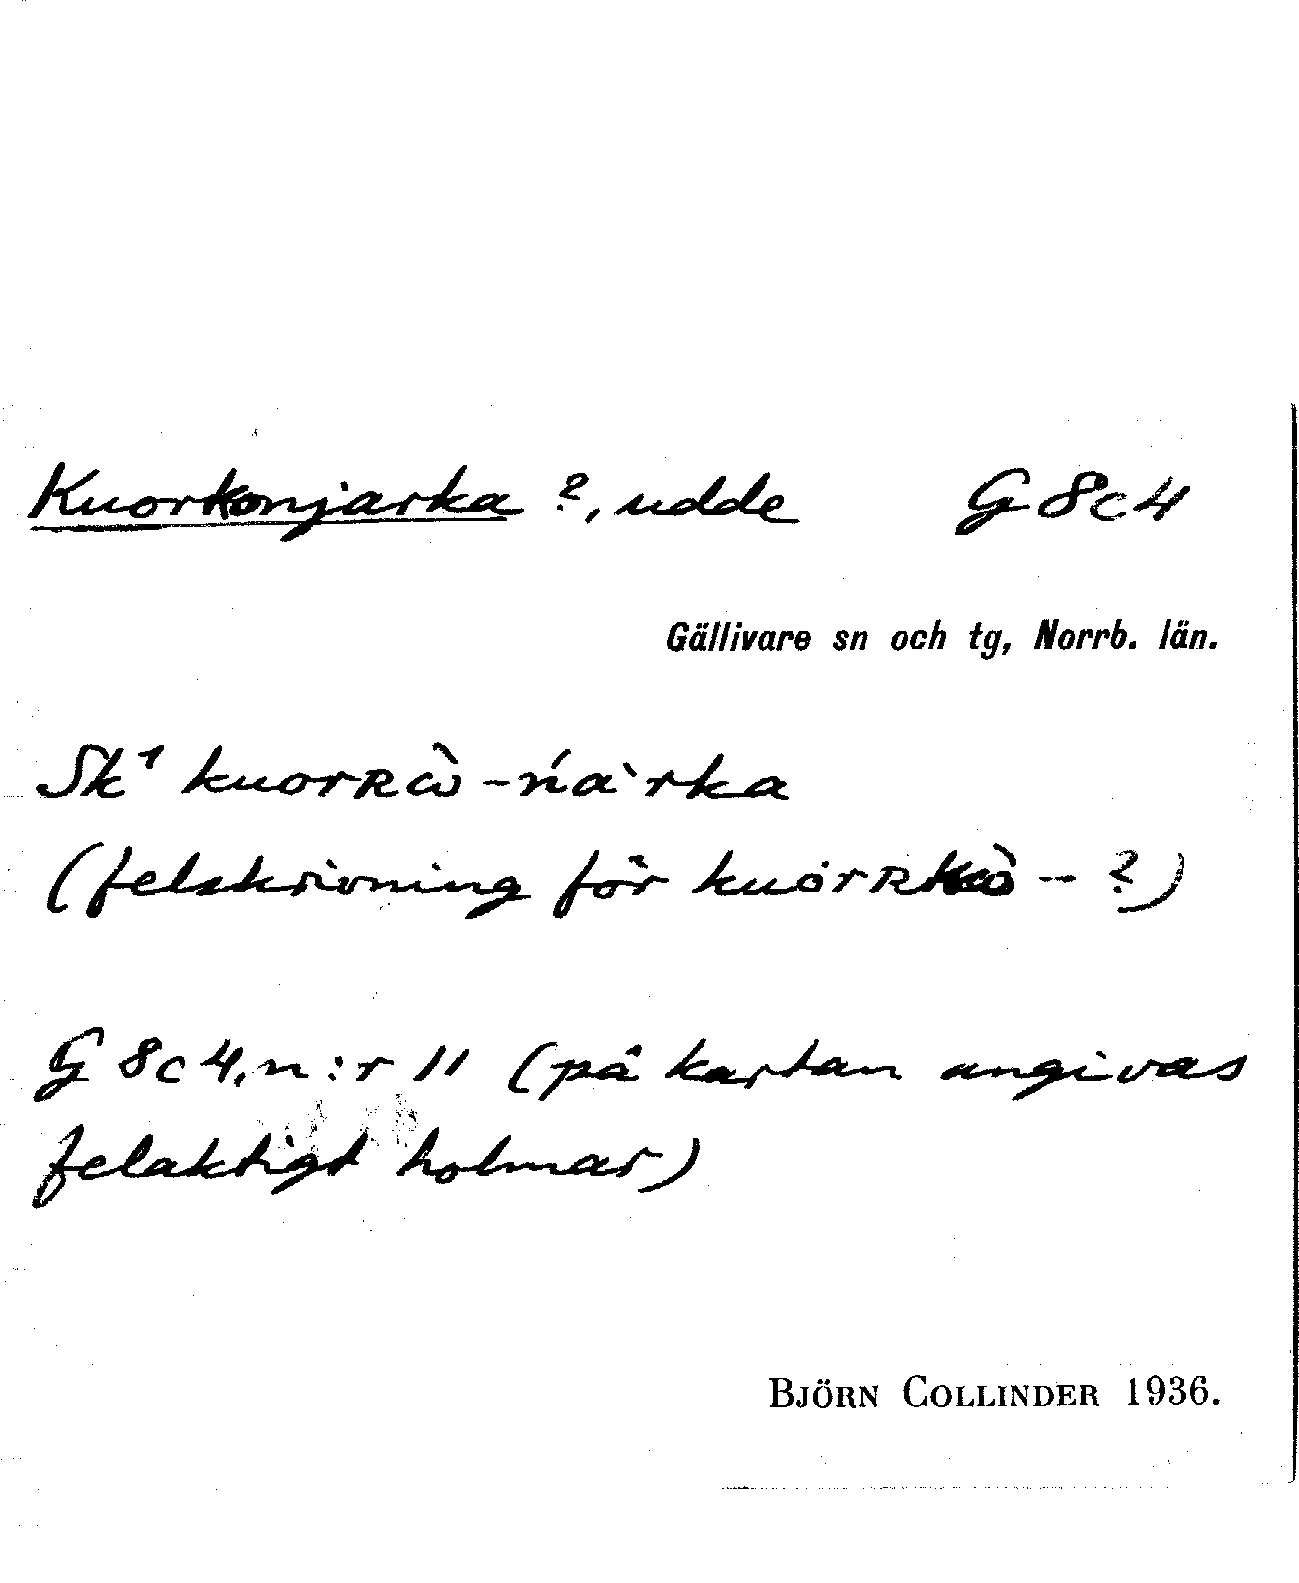 Kuorkonjarka ?, udde G 8c4
Gällivare sn och tg, Norrb. län.
Sk¹ kuorʀὼ -ńa`rka
(felskrivning för kuȯrʀkὼ - ?)
G 8c4, n:r 11 (på kartan angivas
felaktigt holmar)
BJÖRN COLLINDER 1936.